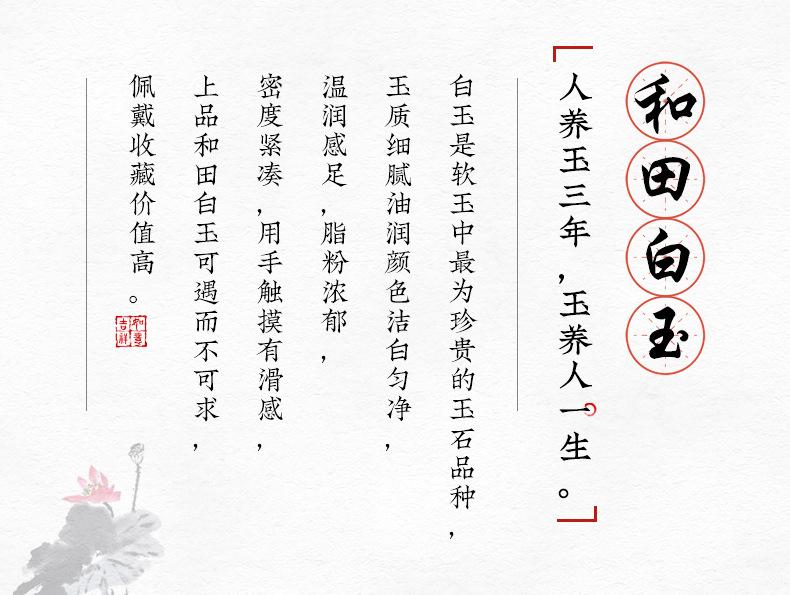 和田白玉
人养玉三年，玉养人一生。
白玉是软玉中最为珍贵的玉石品种，
玉质细腻油润颜色洁白匀净，
温润感足，脂粉浓郁，
密度紧凑，用手触摸有滑感，
上品和田白玉可遇而不可求，
佩戴收藏价值高。
如意吉祥